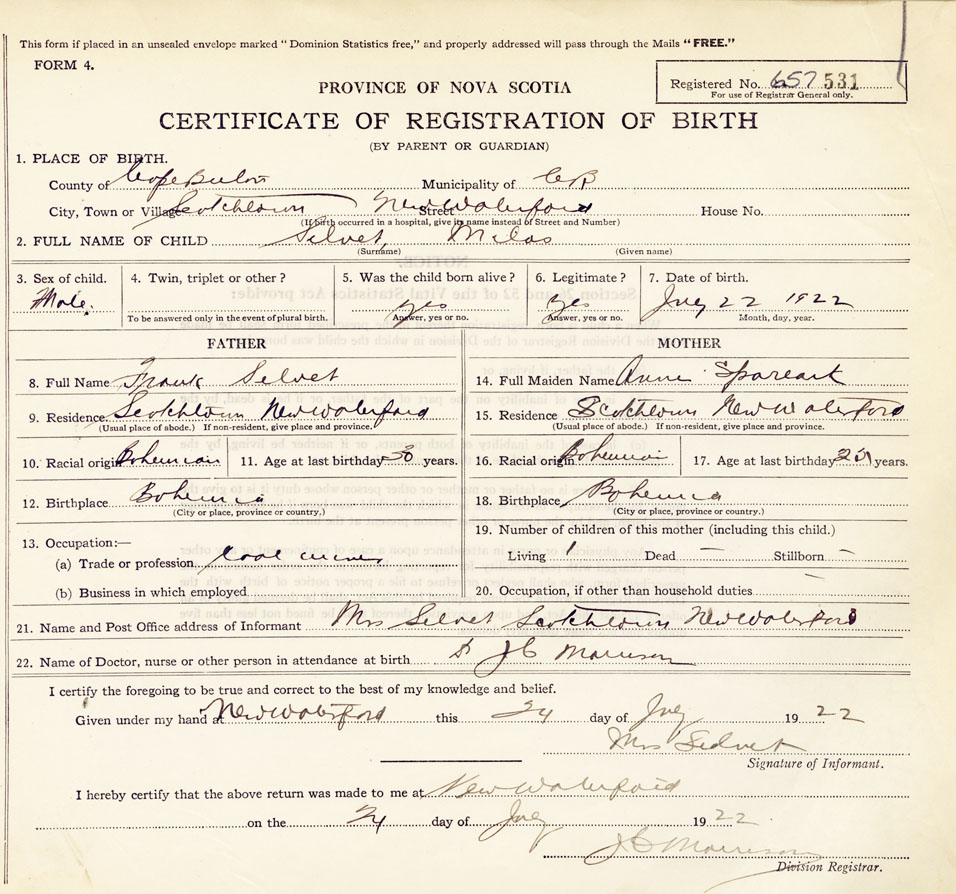 This form if placed in an unsealed envelope marked "Dominion Statistics free," and properly addressed will pass through the Mails "FREE."
FORM 4.
Registered No. 657 531
For use of Registrar General only.
PROVINCE OF NOVA SCOTIA
CERTIFICATE OF REGISTRATION OF BIRTH
(BY PARENT OR GUARDIAN)
1. PLACE OF BIRTH.
County of Cape Breton Municipality of CB
City, Town or Village Scotchtown Street New Waterford House No.
(If birth occurred in a hospital, give its name instead of Street and Number)
2. FULL NAME OF CHILD Selvet, Milos
(Surname) (Given name)
3. Sex of child. 4. Twin, triplet or other? 5. Was the child born alive? 6. Legitimate? 7. Date of birth.
Male. yes yes July 22 1922
To be answered only in the event of plural birth. Answer, yes or no. Answer, yes or no. Month, day, year.
FATHER MOTHER
8. Full Name Frank Selvet 14. Full Maiden Name Anne
9. Residence Scotchtown New Waterford 15. Residence Scotchtown New Waterford
(Usual place of abode.) If non-resident, give place and province. (Usual place of abode.) If non-resident, give place and province.
10. Racial origin Bohemian 11. Age at last birthday 30 years. 16. Racial origin Bohemian 17. Age at last birthday years.
12. Birthplace Bohemia 18. Birthplace Bohemia
(City or place, province or country.) (City or place, province or country.)
13. Occupation:— 19. Number of children of this mother (including this child.)
(a) Trade or profession Coal miner Living 1 Dead — Stillborn –
(b) Business in which employed 20. Occupation, if other than household duties –
21. Name and Post Office address of Informant Mrs Selvet Scotchtown New Waterford
22. Name of Doctor, nurse or other person in attendance at birth Dr J C Morrison
I certify the foregoing to be true and correct to the best of my knowledge and belief.
Given under my hand at New Waterford this 24 day of July 1922
Mrs Selvet
Signature of Informant.
I hereby certify that the above return was made to me at New Waterford
on the 24 day of July 1922
J C Morrison
Division Registrar.